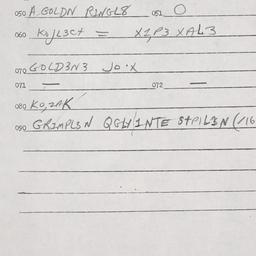 050 A.GOLDN RINGL8 051 O
060 KOJL3Ct = XI,P3 XAL3
070 GOLD3N3 JO.X
071 — 072 —
080 KO,ZAK
090 GRIMPLSN STPILIN (/16